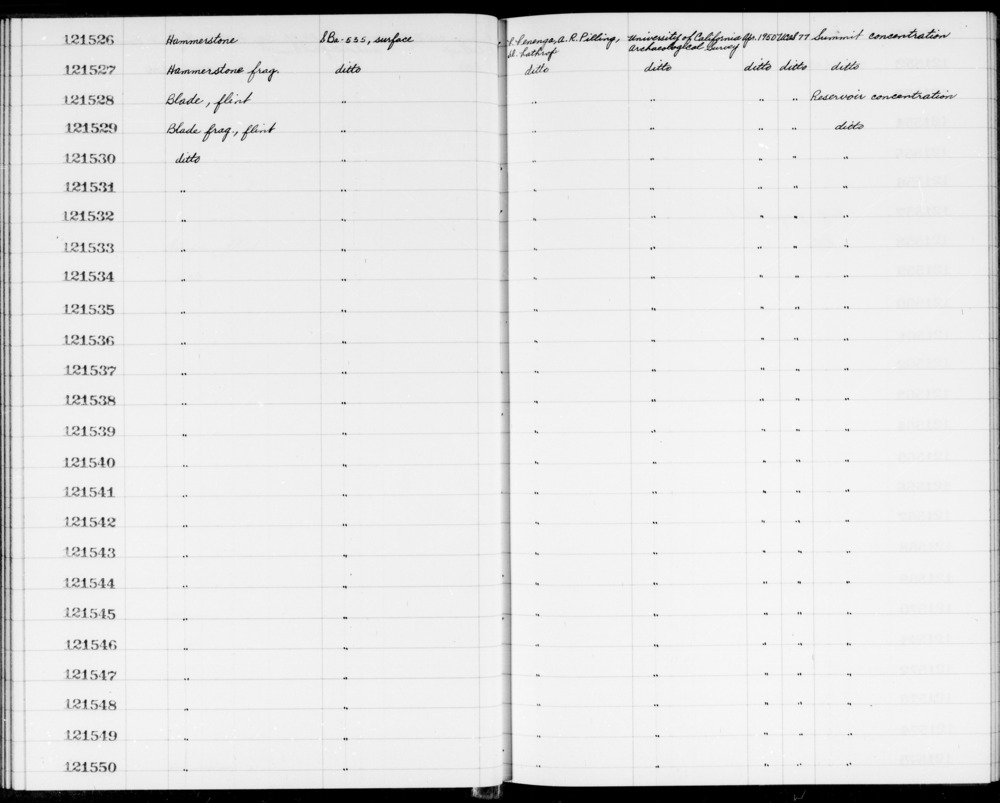 121526 Hammerstone SBa-535, surface Fenenga, A.R. Pilling, University of California Apr. 1950 UCAS 77 Summit concentration
D. Lathrop Archaeological Survey
121527 Hammerstone frag. ditto ditto ditto ditto ditto ditto
121528 Blade, flint " " " " " Reservoir concentration
121529 Blade frag., flint " " " " " ditto
121530 ditto " " " " " "
121531 " " " " " " "
121532 " " " " " " "
121533 " " " " " " "
121534 " " " " " " "
121535 " " " " " " "
121536 " " " " " " "
121537 " " " " " " "
121538 " " " " " " "
121539 " " " " " " "
121540 " " " " " " "
121541 " " " " " " "
121542 " " " " " " "
121543 " " " " " " "
121544 " " " " " " "
121545 " " " " " " "
121546 " " " " " " "
121547 " " " " " " "
121548 " " " " " " "
121549 " " " " " " "
121550 " " " " " " "